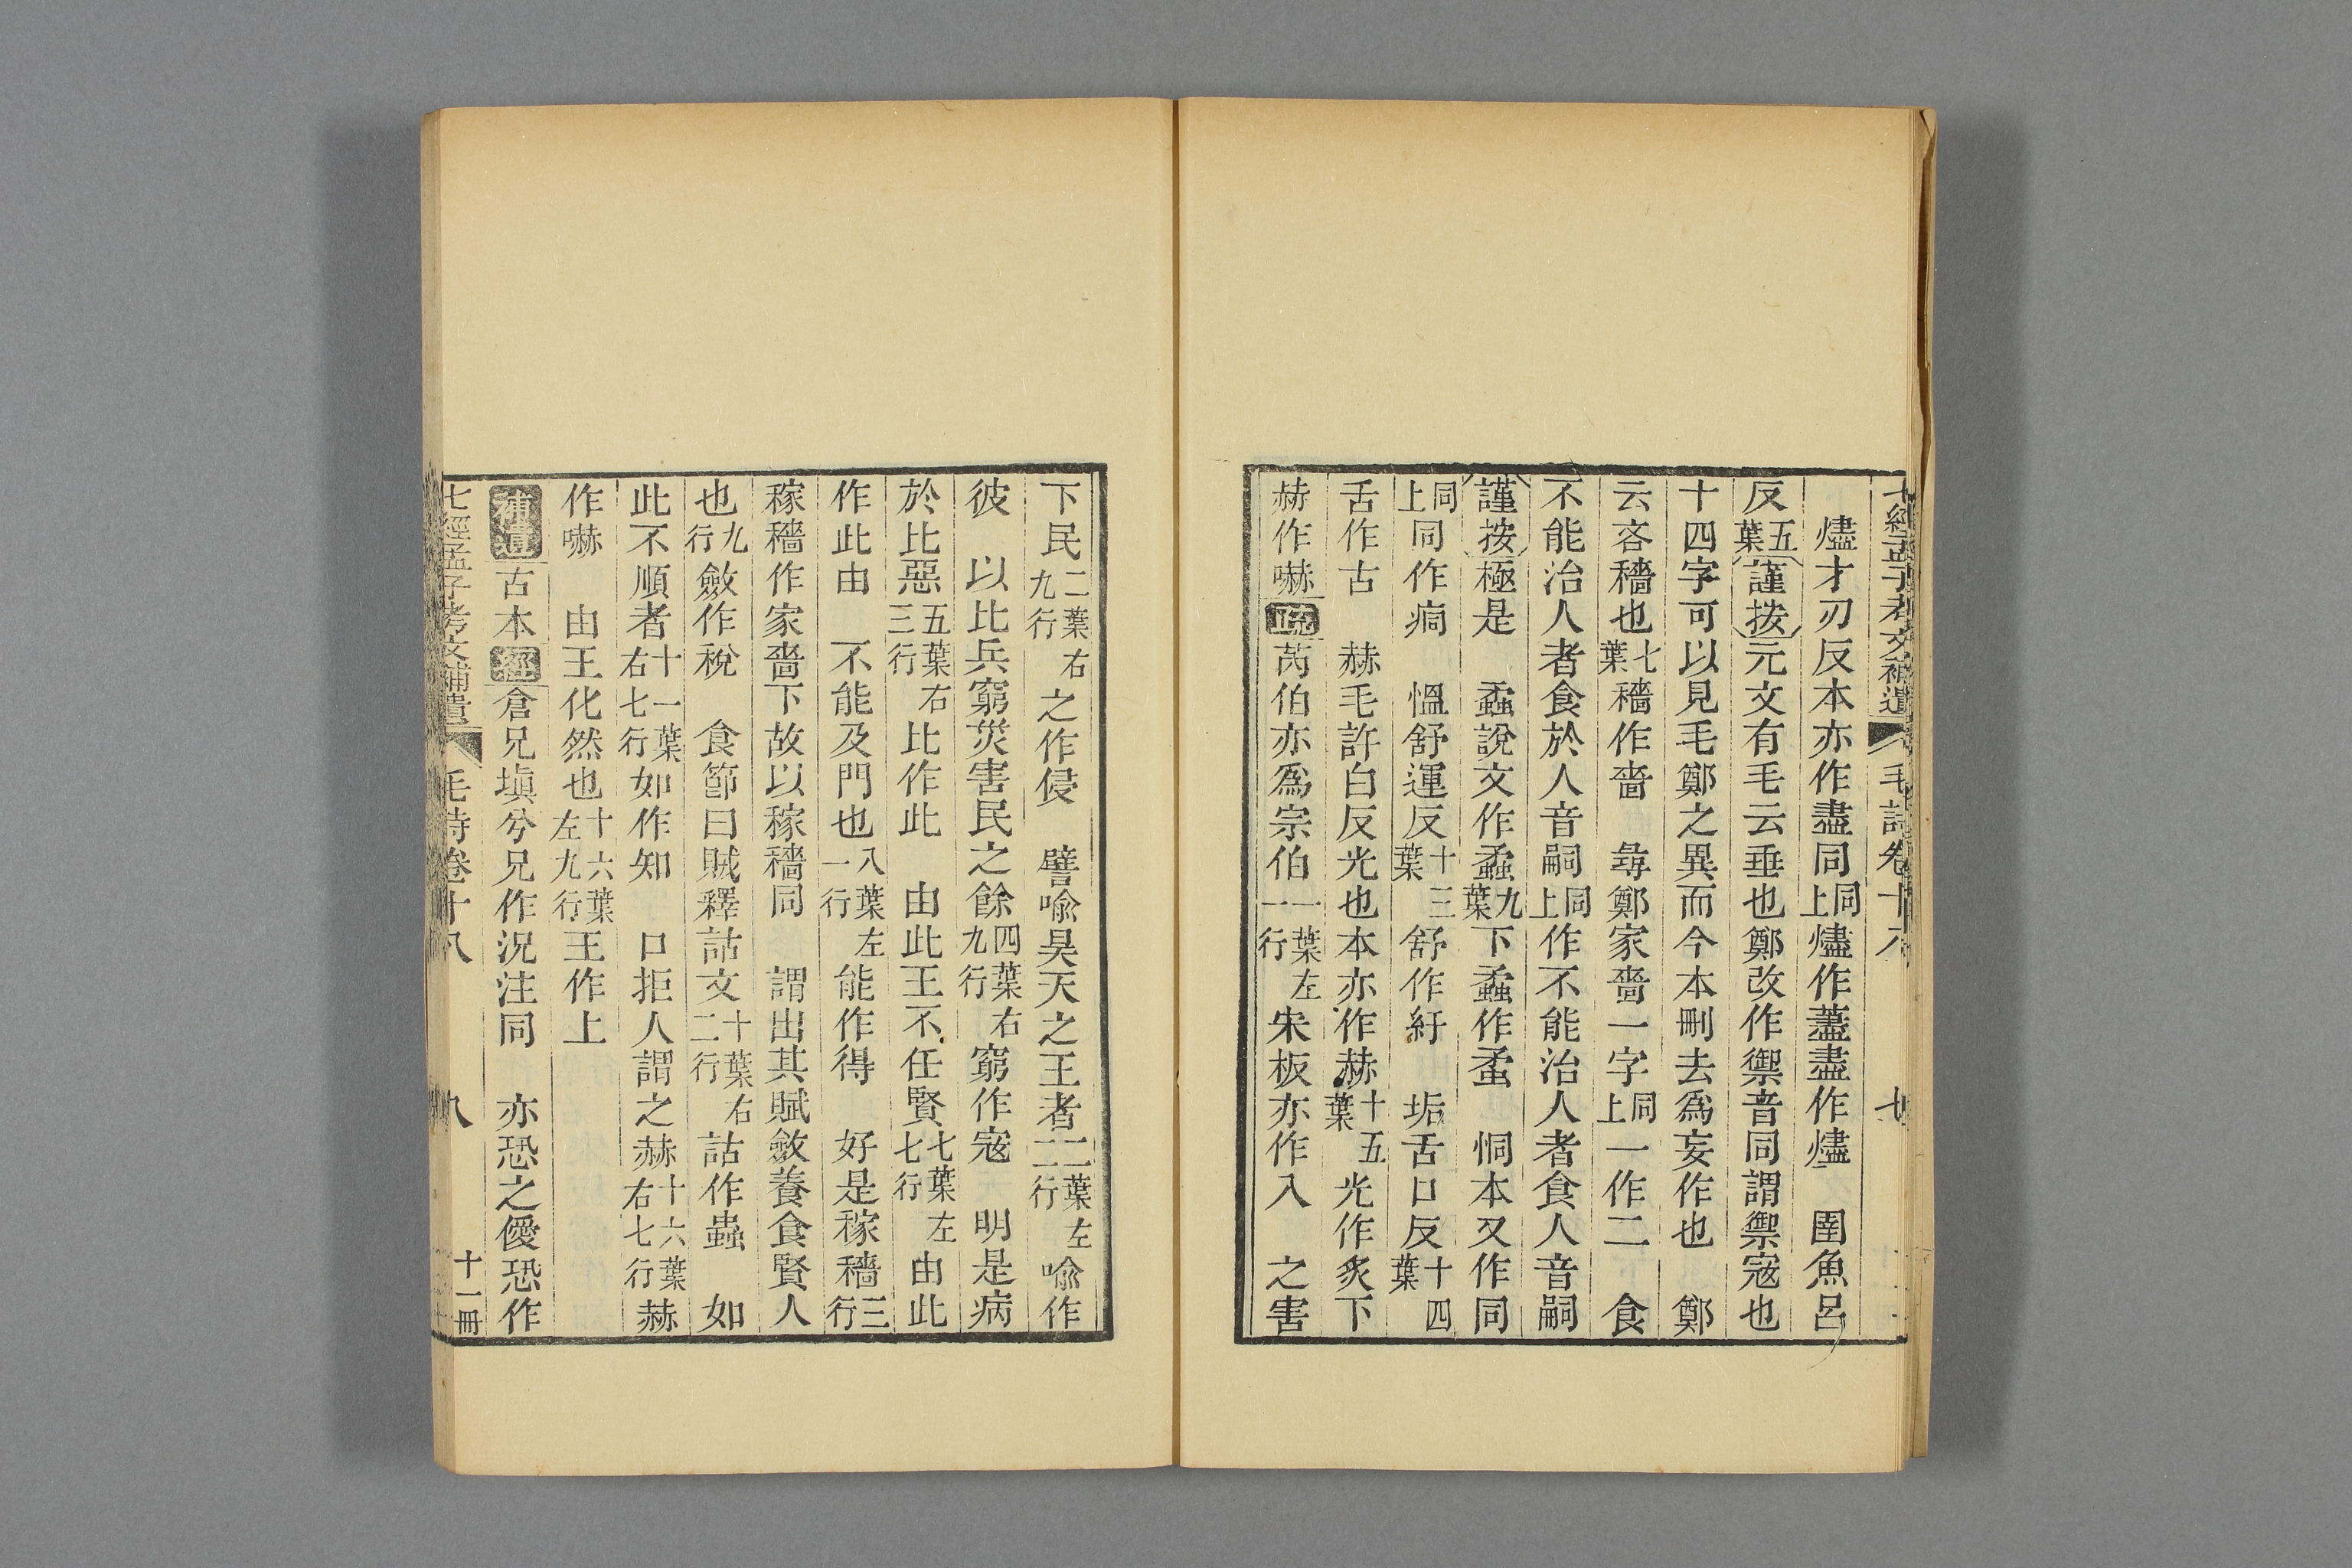 七經孟子考文補遺　毛詩卷十八
燼才刃反本亦作盡同同上燼作藎盡作燼　圉魚呂
反五葉謹按元文有毛云垂也鄭改作禦音同謂禦寇也
十四字可以見毛鄭之異而今本刪去爲妄作也　鄭
云吝穡也七葉穡作嗇　尋鄭家嗇一字同上一作二　食
不能治人者食於人音嗣同上作不能治人者食人音嗣
謹按極是　蟊說文作蟊九葉下蟊作蛑　恫本又作同
同上同作痌　慍舒運反十三葉舒作紆　垢舌口反十四葉
舌作古　赫毛許白反光也本亦作赫十五葉光作炙下
赫作嚇疏芮伯亦爲宗伯一葉左一行宋板亦作入　之害
下民二葉右九行之作侵　譬喻昊天之王者二葉左二行喻作
彼　以比兵窮災害民之餘四葉右九行窮作寇　明是病
於比惡五葉右三行比作此　由此王不任賢七葉左七行由此
作此由　不能及門也八葉左一行能作得　好是稼穡三行
稼穡作家嗇下故以稼穡同　謂出其賦斂養食賢人
也九行斂作稅　食節曰賊釋詁文十葉右二行詁作蟲　如
此不順者十一葉右七行如作知　口拒人謂之赫十六葉右七行赫
作嚇　由王化然也十六葉左九行王作上
補遺古本經倉兄塡兮兄作況注同　亦恐之優恐作
七經孟子考文補遺　毛詩卷十八　八　十一冊